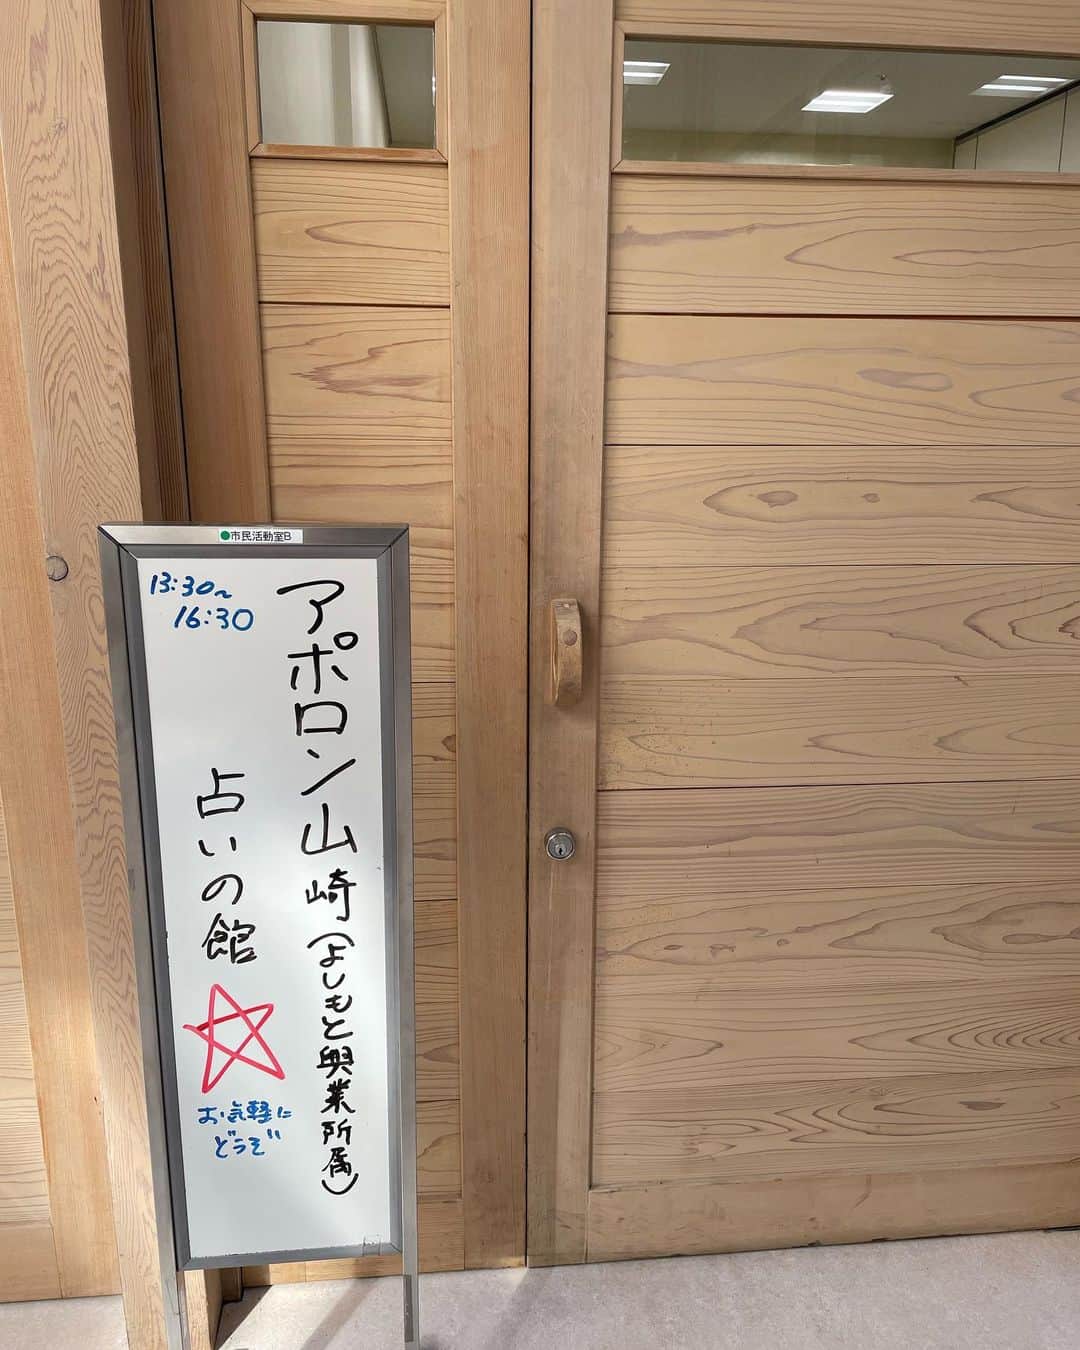 ●市民活動室B
13:30～
16:30
アポロン山崎(よしもと興業所属)
占いの館
お気軽に
どうぞ